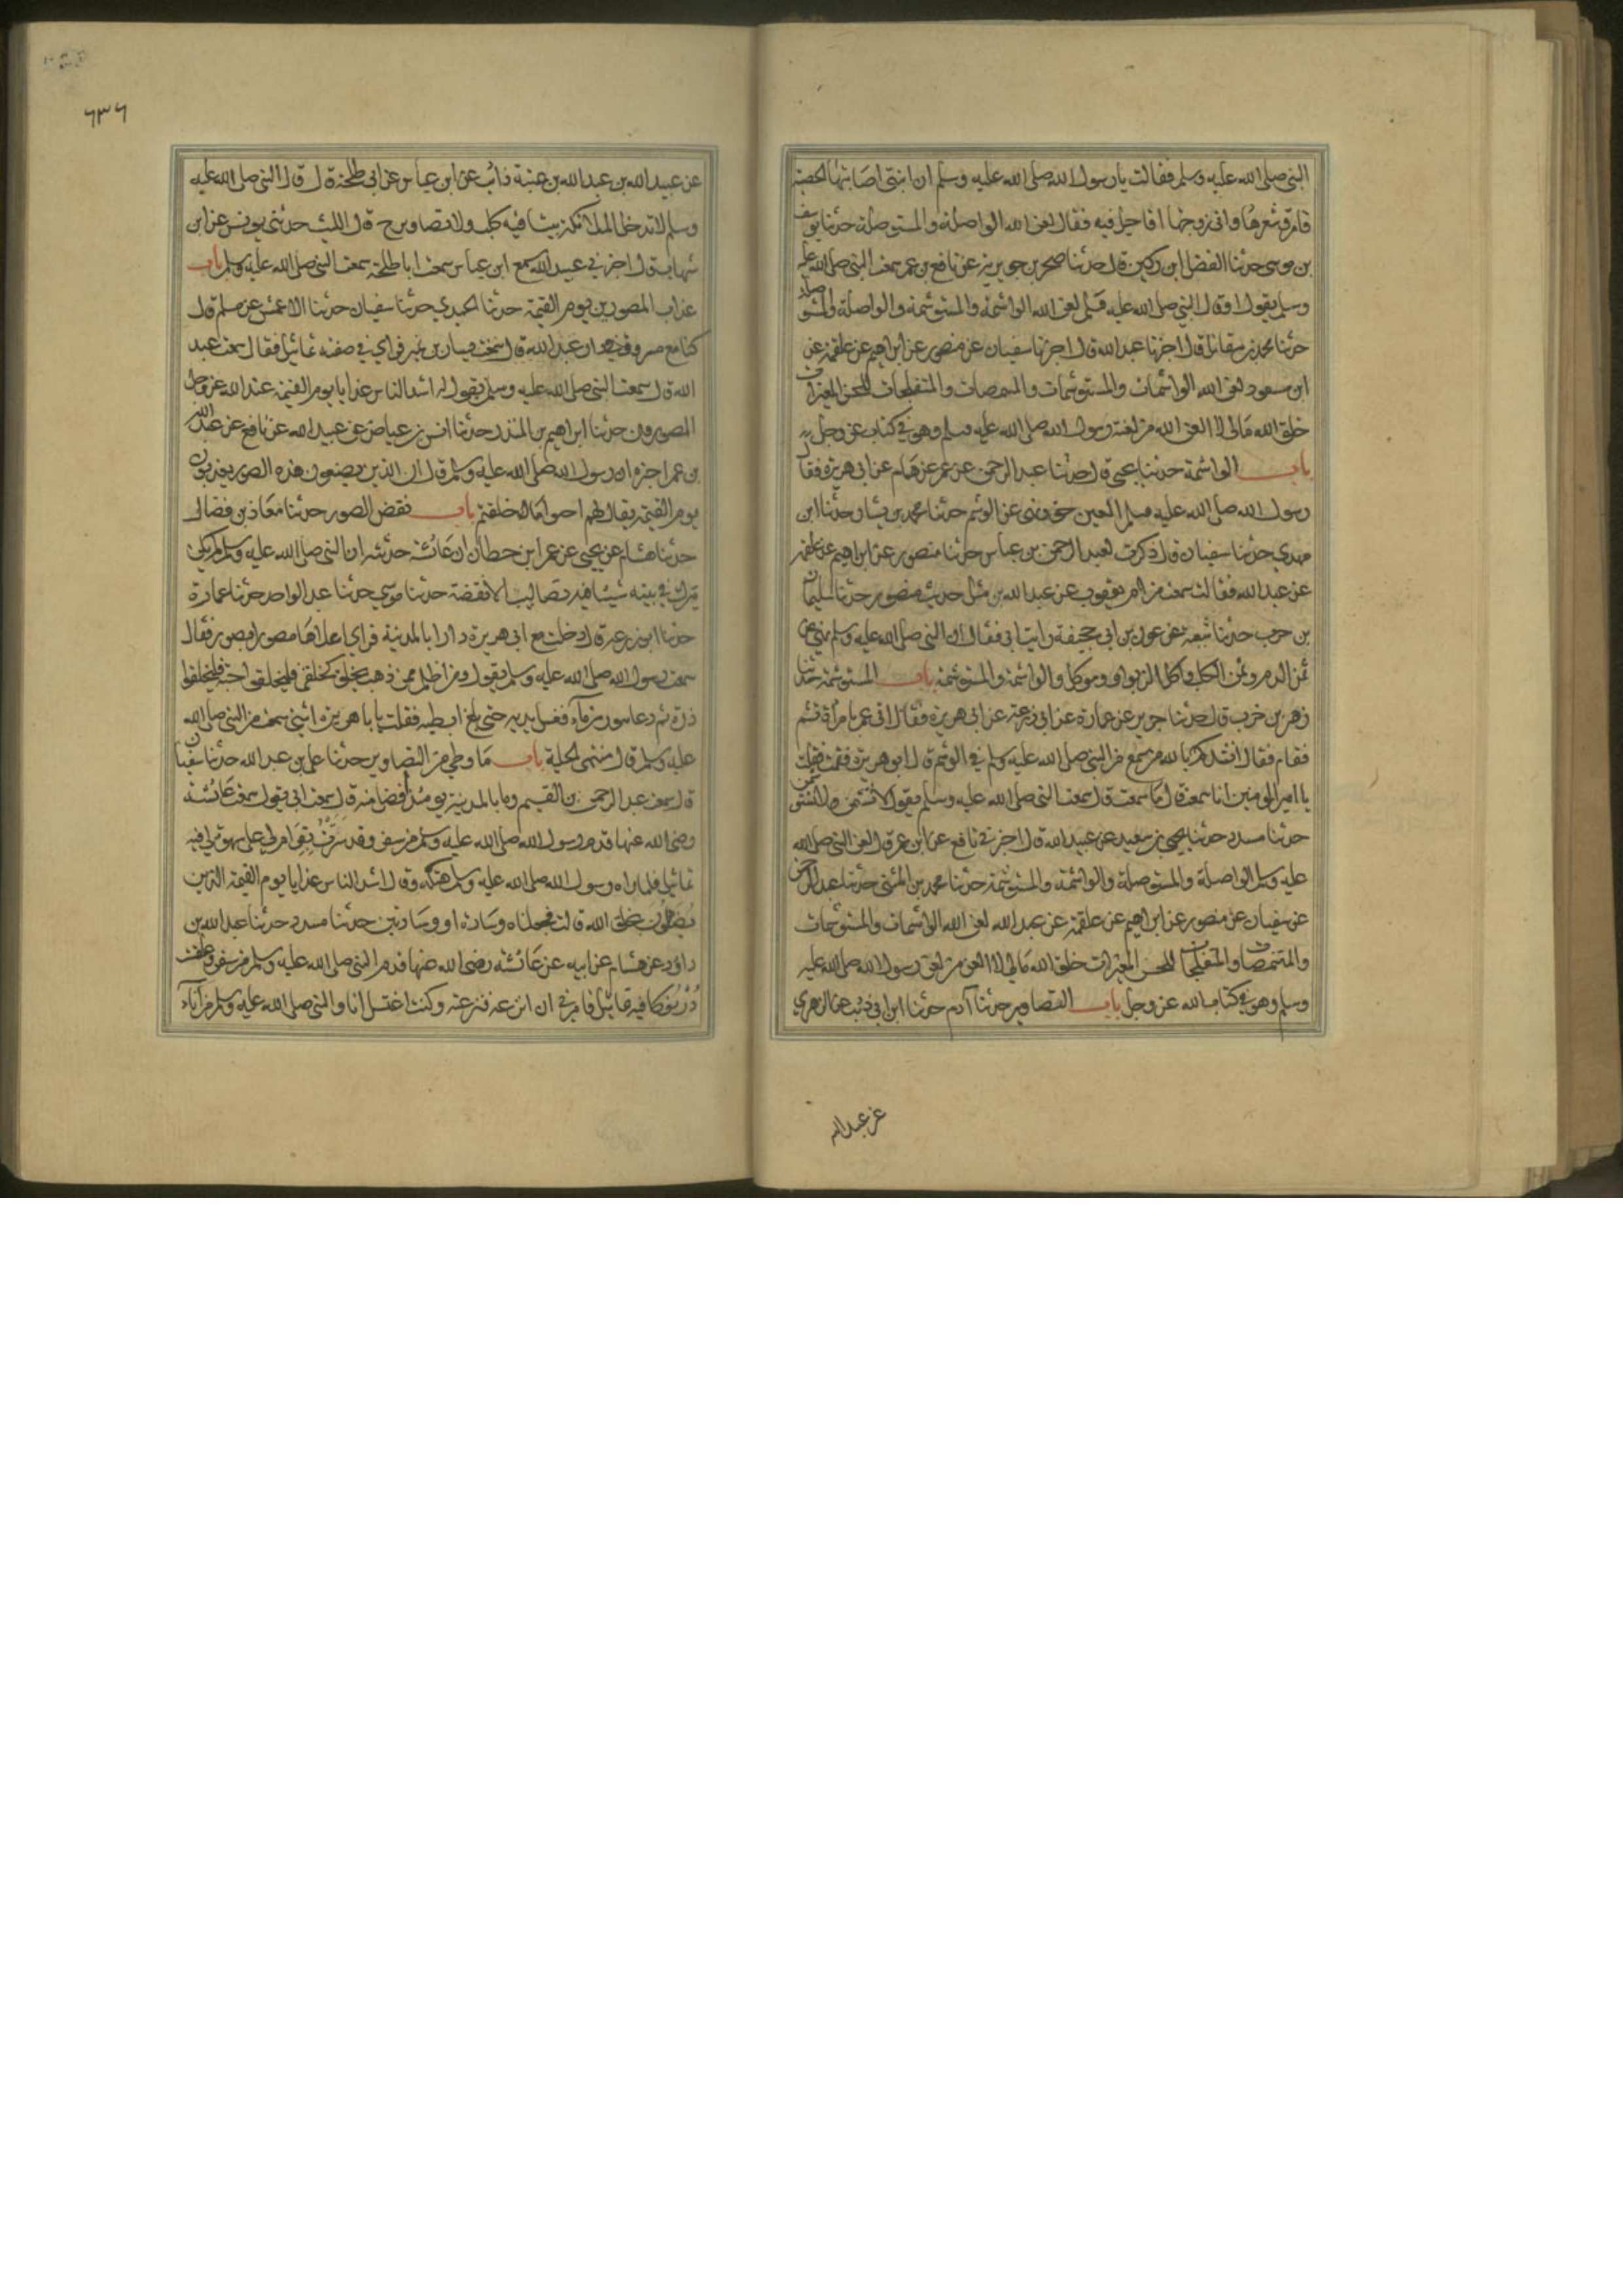 النبي صلى الله عليه وسلم فقالت يا رسول الله صلى الله عليه وسلم ان ابنتي اصابتها الحصبة
فامرق شعرها واني زوجتها افاصل فيه فقال لعن الله الواصلة والمستوصلة حدثنا يوسف
بن موسى حدثنا الفضل ابن دكين قال حدثنا صخر بن جويرية عن نافع بن عمر سمعت النبي صلى الله عليه
وسلم يقول او قال النبي صلى الله عليه وسلم لعن الله الواشمة والمستوشمة والواصلة والمستوصلة
حدثنا محمد بن مقاتل قال اخبرنا عبد الله قال اخبرنا سفيان عن منصور عن ابراهيم عن علقمة عن
ابن مسعود لعن الله الواشمات والمستوشمات والمتنمصات والمتفلجات للحسن المغيرات
خلق الله مالي لا العن الله من لعنه رسول الله صلى الله عليه وسلم وهو في كتاب عز وجل
باب الواشمة حدثنا يحيى قال حدثنا عبد الرحمن عن عمر عن همام عن ابي هريرة فقال
رسول الله صلى الله عليه وسلم العين حق ونهى عن الوشم حدثنا محمد بن بشار حدثنا ابن
مهدي حدثنا سفيان قال ذكرت لعبد الرحمن بن عباس حدثنا منصور عن ابراهيم عن علقمة
عن عبد الله فقالت سمعت من ام يعقوب عن عبد الله بن مثل حديث منصور حدثنا سليمان
بن حرب حدثنا شعبة عن عون بن ابي جحيفة رايت ابي فقال ان النبي صلى الله عليه وسلم نهى عن
ثمن الدم وثمن الكلب واكل الربوا وموكله والواشمة والمستوشمة باب المستوشمة حدثنا
زهير بن حرب قال حدثنا جرير عن عمارة عن ابي زرعة عن ابي هريرة فقال اتى عمر بامراة تشم
فقام فقال انشدكم بالله من سمع من النبي صلى الله عليه وسلم في الوشم قال ابو هريرة فقمت فقلت
يا امير المومنين انا سمعت قال ما سمعت قال سمعت النبي صلى الله عليه وسلم يقول لا تشمن ولا تستوشمن
حدثنا مسدد حدثنا يحيى بن سعيد عن عبيد الله قال اخبرني نافع عن ابن عمر قال لعن النبي صلى الله
عليه وسلم الواصلة والمستوصلة والواشمة والمستوشمة حدثنا محمد بن المثنى حدثنا عبد الرحمن
عن سفيان عن منصور عن ابراهيم عن علقمة عن عبد الله لعن الله الواشمات والمستوشمات
والمتنمصات والمتفلجات للحسن المغيرات خلق الله مالي لا العن من لعن رسول الله صلى الله عليه
وسلم وهو في كتاب الله عز وجل باب التصاوير حدثنا آدم حدثنا ابن ابي ذئب عن الزهري
عن عبد الله
٦٣٦
عن عبيد الله بن عبد الله بن عتبة عن ابن عباس عن ابي طلحة قال قال النبي صلى الله عليه
وسلم لا تدخل الملائكة بيتا فيه كلب ولا تصاوير ح قال الليث حدثني يونس عن ابن
شهاب قال اخبرني عبيد الله سمع ابن عباس سمعت ابا طلحة سمعت النبي صلى الله عليه وسلم باب
عذاب المصورين يوم القيمة حدثنا الحميدي حدثنا سفيان حدثنا الاعمش عن مسلم قال
كنا مع مسروق يسار بن نمير فراي في صفته تماثيل فقال سمعت عبد
الله قال سمعت النبي صلى الله عليه وسلم يقول ان اشد الناس عذابا يوم القيمة عند الله عز وجل
المصورون حدثنا ابراهيم بن المنذر حدثنا انس بن عياض عن عبيد الله عن نافع عن عبد الله
بن عمر اخبره ان رسول الله صلى الله عليه وسلم قال ان الذين يصنعون هذه الصور يعذبون
يوم القيمة يقال لهم احيوا ما خلقتم باب نقض الصور حدثنا معاذ بن فضالة
حدثنا هشام عن يحيى عن عمر ابن حطان ان عائشة حدثته ان النبي صلى الله عليه وسلم لم يكن
يترك في بيته شيئا فيه تصاليب الا نقضه حدثنا موسى حدثنا عبد الواحد حدثنا عمارة
حدثنا ابو زرعة قال دخلت مع ابي هريرة دارا بالمدينة فراي اعلاها مصورا يصور فقال
سمعت رسول الله صلى الله عليه وسلم يقول ومن اظلم ممن ذهب يخلق كخلقي فليخلقوا حبة فليخلقوا
ذرة ثم دعا بتور من ماء فغسل يديه حتى بلغ ابطيه فقلت يا باهريرة اشيئ سمعت من النبي صلى الله
عليه وسلم قال منتهى الحلية باب ما وطي من التصاوير حدثنا علي بن عبد الله حدثنا سفيان
قال سمعت عبد الرحمن بن القسم وما بالمدينة يومئذ افضل منه قال سمعت ابي يقول سمعت عائشة
رضى الله عنها قدم رسول الله صلى الله عليه وسلم من سفر وقد سترت بقرام لي على سهوة لي فيه
تماثيل فلما راه رسول الله صلى الله عليه وسلم هتكه وقال اشد الناس عذابا يوم القيمة الذين
يضاهون بخلق الله قالت فجعلناه وسادة او وسادتين حدثنا مسدد حدثنا عبد الله بن
داود عن هشام عن ابيه عن عائشة رضى الله عنها قدم النبي صلى الله عليه وسلم من سفر وعلقت
درنوكا فيه تماثيل فامرني ان انزعه فنزعته وكنت اغتسل انا والنبي صلى الله عليه وسلم من اناء